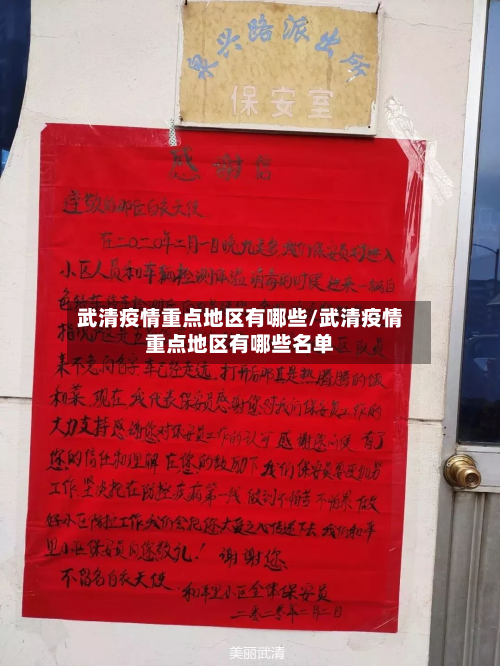 泉兴路派出所
保安室
感谢信
尊敬的那位白衣天使
在二〇二〇年二月一日晚九点多,我们保安员对进入
小区人员和车辆检测体温 消毒的时候
武清疫情重点地区有哪些/武清疫情
重点地区有哪些名单
来不急问名字车已经走远,打开后那真是热腾腾的饭
和菜,现在我代表保安员感谢您对我们保安员工作的
大力支持感谢您对保安员工作的认可
您的信任和理解 在您的鼓励下我们保安员要更加努
工作 坚决把在防控疫病第一线 做到不怕苦不怕累 做
好小区防控工作我们会把您大爱之心传递下去 我们和平
里小区保安员向您致礼!谢谢您
不留名白衣天使
和平里小区全体保安员
二〇二〇年二月二日
美丽武清